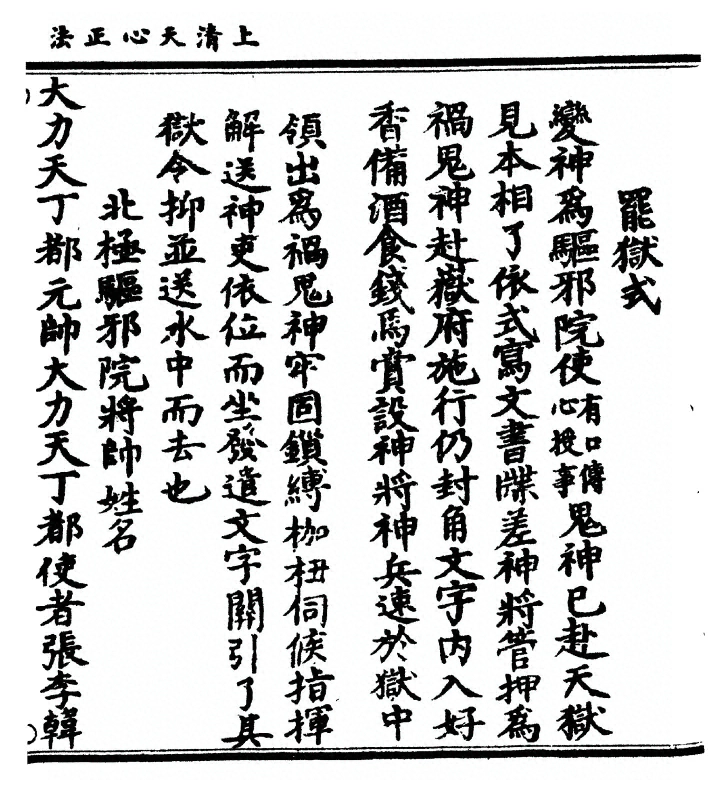 上清天心正法
罷獄式
變神爲驅邪院使有口傳心授事鬼神已赴天獄
見本相了依式寫文書牒差神將管押爲
禍鬼神赴嶽府施行仍封角文字內入好
香備酒食錢馬賞設神將神兵速於獄中
領出爲禍鬼神牢固鎖縛枷杻伺候指揮
解送神吏依位而坐發遣文字關引了其
獄令抑並送水中而去也
北極驅邪院將帥姓名
大力天丁都元帥大力天丁都使者張李韓